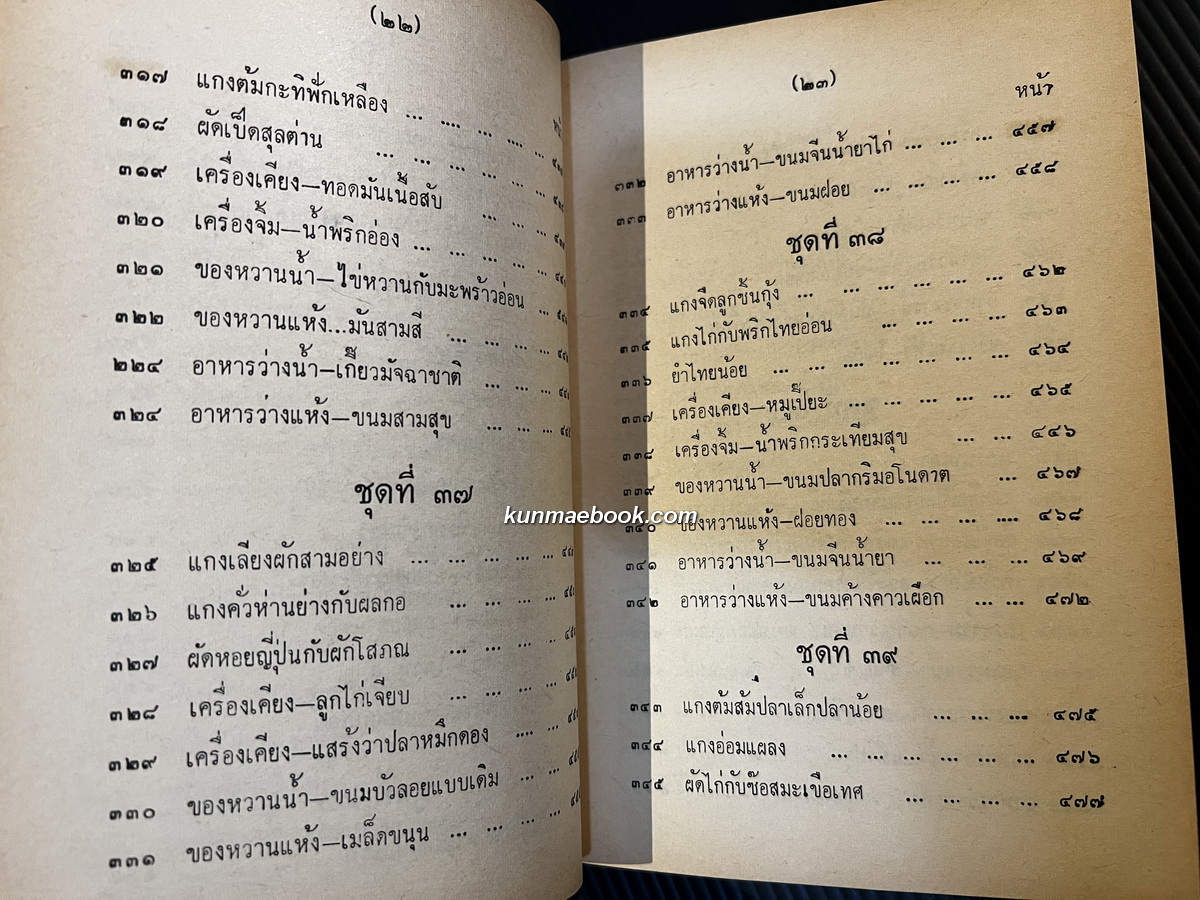 (๒๒)
๓๑๗ แกงต้มกะทิฟักเหลือง ... .... ... .... ...
๓๑๘ ผัดเป็ดสุลต่าน ... ... ... ... ... ...
๓๑๙ เครื่องเคียง—ทอดมันเนื้อสับ ... ... ...
๓๒๐ เครื่องจิ้ม—น้ำพริกอ่อง ... ... ... ... ...
๓๒๑ ของหวานน้ำ—ไข่หวานกับมะพร้าวอ่อน ...
๓๒๒ ของหวานแห้ง...มันสามสี ... ... ... ...
๒๒๔ อาหารว่างน้ำ—เกี๊ยวมัจฉาชาติ ... ... ...
๓๒๔ อาหารว่างแห้ง—ขนมสามสุข ... ... ...
ชุดที่ ๓๗
๓๒๕ แกงเลียงผักสามอย่าง ... ... ... ...
๓๒๖ แกงคั่วห่านย่างกับผลกอ ... ... ... ...
๓๒๗ ผัดหอยญี่ปุ่นกับผักโสภณ ... ... ... ...
๓๒๘ เครื่องเคียง—ลูกไก่เจียบ ... ... ... ...
๓๒๙ เครื่องเคียง—แสร้งว่าปลาหมึกดอง .... ...
๓๓๐ ของหวานน้ำ—ขนมบัวลอยแบบเดิม ... ...
๓๓๑ ของหวานแห้ง—เมล็ดขนุน ... ... ... ...
(๒๓)
หน้า
๓๓๒ อาหารว่างน้ำ—ขนมจีนน้ำยาไก่ ... ... ... ๔๕๗
๓๓๓ อาหารว่างแห้ง—ขนมฝอย ... ... ... ... ๔๕๘
ชุดที่ ๓๘
๓๓๔ แกงจืดลูกชิ้นกุ้ง ... ... ... ... ... ... ๔๖๒
๓๓๕ แกงไก่กับพริกไทยอ่อน ... ... ... ... ๔๖๓
๓๓๖ ยำไทยน้อย ... ... .... ... ... ... ... ๔๖๔
๓๓๗ เครื่องเคียง—หมูเปี๊ยะ ... ... ... ... ... ๔๖๕
๓๓๘ เครื่องจิ้ม—น้ำพริกกระเทียมสุข ... ... ๔๔๖
๓๓๙ ของหวานน้ำ—ขนมปลากริมอโนดาต ... ๔๖๗
๓๔๐ ของหวานแห้ง—ฝอยทอง ... ... ... .... ๔๖๘
๓๔๑ อาหารว่างน้ำ—ขนมจีนน้ำยา ... ... ... ๔๖๙
๓๔๒ อาหารว่างแห้ง—ขนมค้างคาวเผือก ... ... ๔๗๒
ชุดที่ ๓๙
๓๔๓ แกงต้มส้มปลาเล็กปลาน้อย ... ... ... ๔๗๕
๓๔๔ แกงอ่อมแผลง ... ... ... ... ... ... ๔๗๖
๓๔๕ ผัดไก่กับซ๊อสมะเขือเทศ ... ... ... ... ๔๗๗
kunmaebook.com